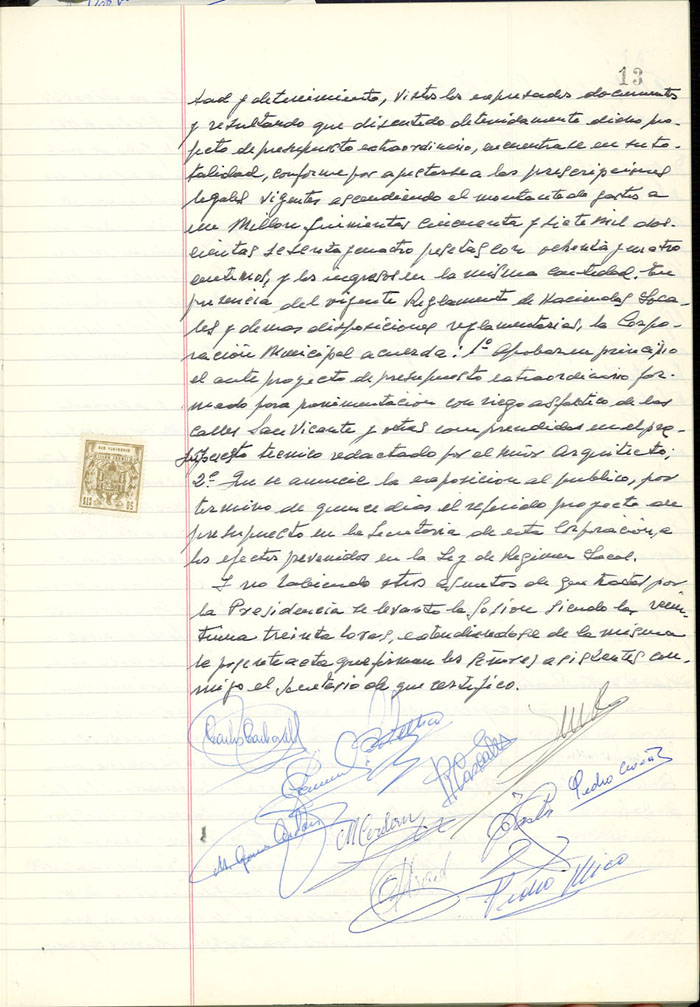 13
tad y detenimiento, vistos los expresados documentos
y resultando que discutido detenidamente dicho pro-
yecto de presupuesto extraordinario, encuentrase en su to-
talidad, conforme por ajustarse a las prescripciones
legales vigentes ascendiendo el montante de gastos a
un Millon quinientas cincuenta y siete mil dos-
cientas sesenta y cuatro pesetas con ochenta y cuatro
centimos, y los ingresos en la misma cantidad. En
presencia del vigente Reglamento de Haciendas Loca-
les y demas disposiciones reglamentarias, la Corpo-
ración Municipal acuerda: 1º Aprobar en principio
el ante proyecto de presupuesto extraordinario for-
mado para pavimentación con riego asfaltico de las
calles San Vicente y otras comprendidas en el pre-
supuesto tecnico redactado por el Arquitecto;
2º Que se anuncie la exposicion al publico, por
termino de quince dias el referido proyecto de
presupuesto en la Secretaria de esta Corporación, a
los efectos prevenidos en la Ley de Regimen Local.
Y no habiendo otros asuntos de que tratar por
la Presidencia se levanta la Sesion siendo las vein-
tiuna treinta horas, extendiendose de la misma
la presente acta que firman los Señores asistentes con-
migo el Secretario de que certifico.
Carlos Carbonell
M. Cerdan
Pedro
Pedro Mico
50 CTS